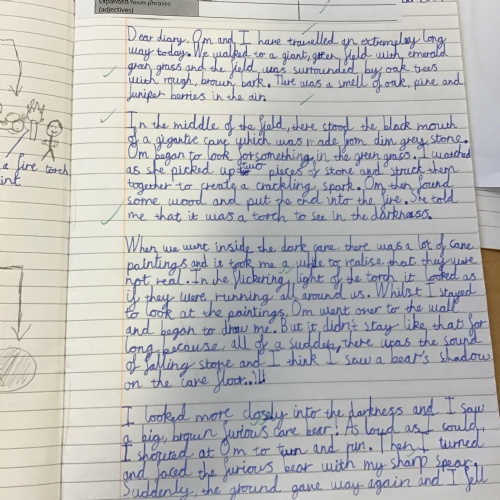 Expanded noun phrases
(adjectives)
Dear diary, Om and I have travelled an extremely long
way today. We walked to a giant, green field with emerald
green grass and the field was surrounded by oak trees
with rough, brown bark. There was a smell of oak, pine and
juniper berries in the air.
In the middle of the field, there stood the black mouth
of a gigantic cave which was made from dim grey stone.
Om began to look for something in the green grass. I watched
as she picked up two pieces of stone and struck them
together to create a crackling spark. Om then found
some wood and put the end into the fire. She told
me that it was a torch to see in the darkness.
When we went inside the dark cave there was a lot of cave
paintings and it took me a while to realise that they were
not real. In the flickering light of the torch it looked as
if they were running all around us. Whilst I stayed
to look at the paintings, Om went over to the wall
and began to draw me. But it didn't stay like that for
long because all of a sudden, there was the sound
of falling stone and I think I saw a bear's shadow
on the cave floor..!!!
I looked more closely into the darkness and I saw
a big, brown furious cave bear. As loud as I could,
I shouted at Om to turn and run. Then I turned
and faced the furious bear with my sharp spear.
Suddenly, the ground gave way again and I fell
a fire torch